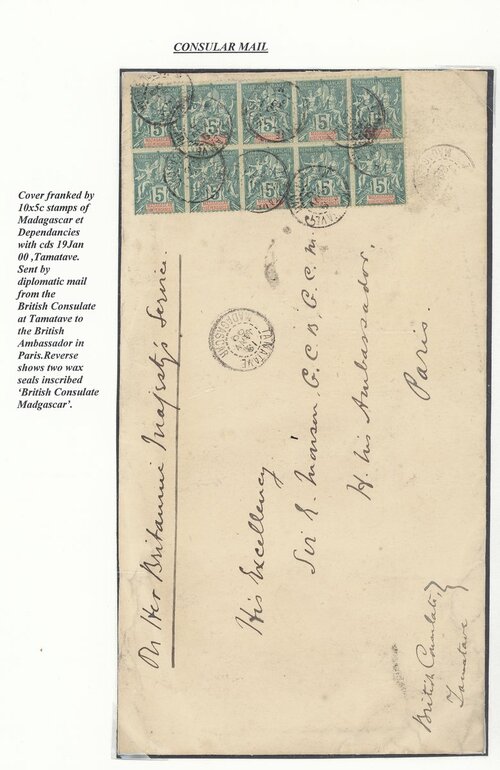 CONSULAR MAIL
Cover franked by
10x5c stamps of
Madagascar et
Dependancies
with cds 19Jan
00 ,Tamatave.
Sent by
diplomatic mail
from the
British Consulate
at Tamatave to
the British
Ambassador in
Paris.Reverse
shows two wax
seals inscribed
‘British Consulate
Madgascar’.
On Her Britannic Majesty's Service.
His Excellency
Sir E. Monson G.C.B. G.C.M.
H. M's Ambassador,
Paris.
British Consulate,
Tamatave
TAMATAVE
MADAGASCAR
5
5
5
5
5
5
5
5
5
5